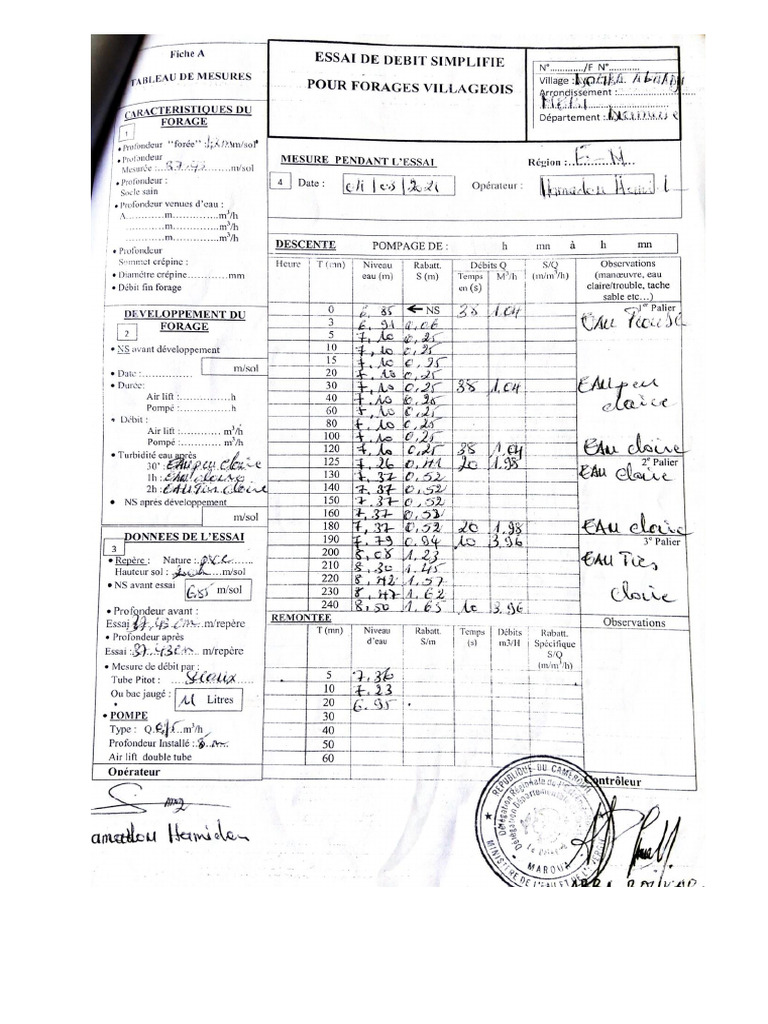 Fiche A
TABLEAU DE MESURES
ESSAI DE DEBIT SIMPLIFIE
POUR FORAGES VILLAGEOIS
N°............/F N°...........
Village :
Arrondissement :
Département :
CARACTERISTIQUES DU
FORAGE
1
• Profondeur "forée" m/sol
• Profondeur
Mesurée : 37.43 m/sol
• Profondeur :
Socle sain
• Profondeur venues d'eau :
A............m............m³/h
............m............m³/h
............m............m³/h
• Profondeur
Sommet crépine :
• Diamètre crépine............mm
• Débit fin forage
DEVELOPPEMENT DU
FORAGE
2
• NS avant développement
m/sol
• Date :
• Durée:
Air lift :...............h
Pompé :...............h
• Débit :
Air lift :............... m³/h
Pompé :............... m³/h
• Turbidité eau après
30' : EAU peu claire
1h : EAU claire
2h : EAU Très claire
• NS après développement
m/sol
DONNEES DE L'ESSAI
3
• Repère : Nature :
Hauteur sol : m/sol
• NS avant essai
6.85 m/sol
• Profondeur avant :
Essai 37.43 cm m/repère
• Profondeur après
Essai : 37.43 cm m/repère
• Mesure de débit par :
Tube Pitot : Seaux
Ou bac jaugé : 11 Litres
• POMPE
Type : Q. m³/h
Profondeur Installé : m
Air lift double tube
Opérateur
MESURE PENDANT L'ESSAI
Région : E-N
4
Date : 2021
Opérateur : Hamadou Hamid
DESCENTE POMPAGE DE : h mn à h mn
Heure T (mn) Niveau eau (m) Rabatt. S (m) Débits Q Temps en (s) M³/h S/Q (m/m³/h) Observations (manœuvre, eau claire/trouble, tache sable etc…)
0 6.85 ← NS 38 1.04 1er Palier
3 6.91 0.06 EAU Trouble
5 7,10 0,25
10 7,10 0,25
15 7.10 0,25
20 7.10 0,25
30 7,10 0,25 38 1.04 EAU peu
40 7.10 0,25 claire
60 7.10 0,25
80 7.10 0,25
100 7.10 0,25
120 7.10 0,25 38 1.04 EAU claire
125 7.26 0.41 20 1.98 2e Palier
130 7.37 0.52 EAU claire
140 7.37 0.52
150 7.37 0.52
160 7.37 0.52
180 7.37 0.52 20 1.98 EAU claire
190 7.79 0.94 10 3.96 3e Palier
200 8.08 1.23 EAU Très
210 8.30 1.45
220 8.42 1.57
230 8.47 1.62 claire
240 8.50 1.65 10 3.96
REMONTEE
T (mn) Niveau d'eau Rabatt. S/m Temps (s) Débits m3/H Rabatt. Spécifique S/Q (m/m³/h) Observations
5 7.36
10 7.23
20 6.95
30
40
50
60
Contrôleur
amadou Hamidou
REPUBLIQUE DU CAMEROUN
Délégation Régionale de l'
Délégation Départementale
MAROUA
MINISTERE DE L'EAU ET DE L'ENERGIE